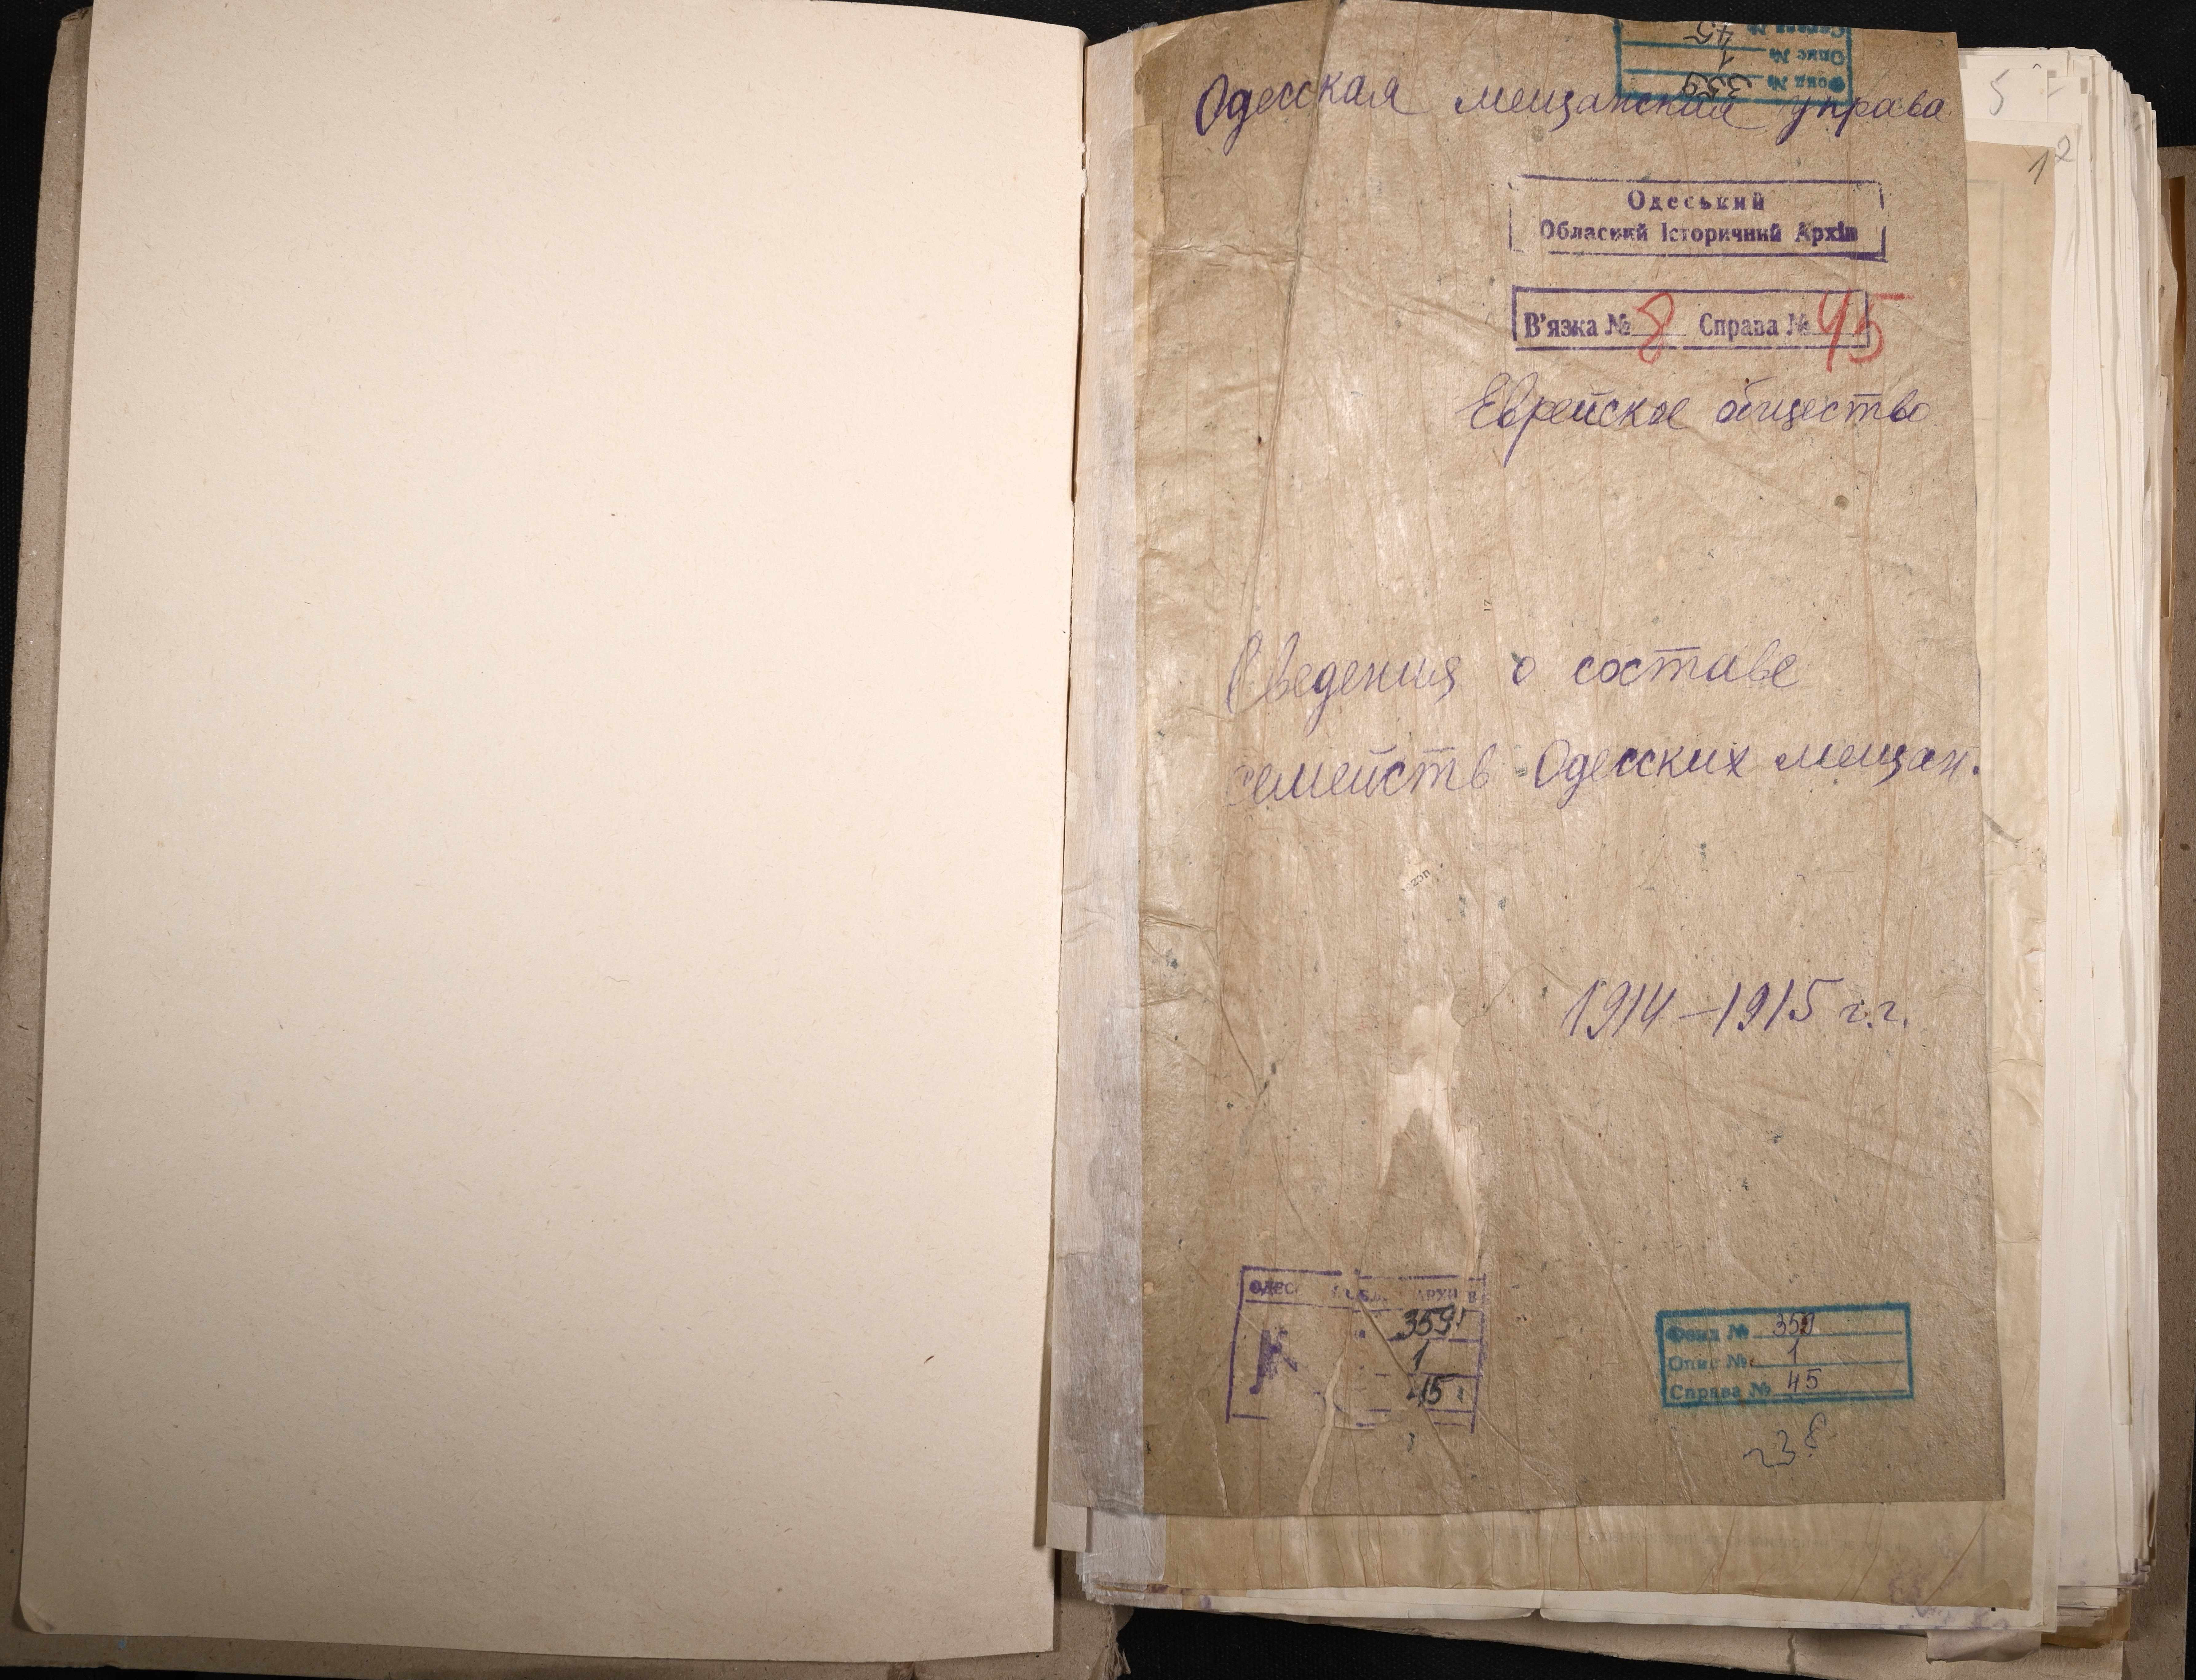 Справа № 45
Опис № 1
Фонд № 359
Одесская мещанская управа
5
12
Одеський
Обласний Історичний Архів
В'язка № 8 Справа № 45
Еврейское общество
Сведения о составе
семейств Одесских мещан.
1914–1915 г.г.
359
1
45
Фонд № 359
Опис № 1
Справа № 45
238